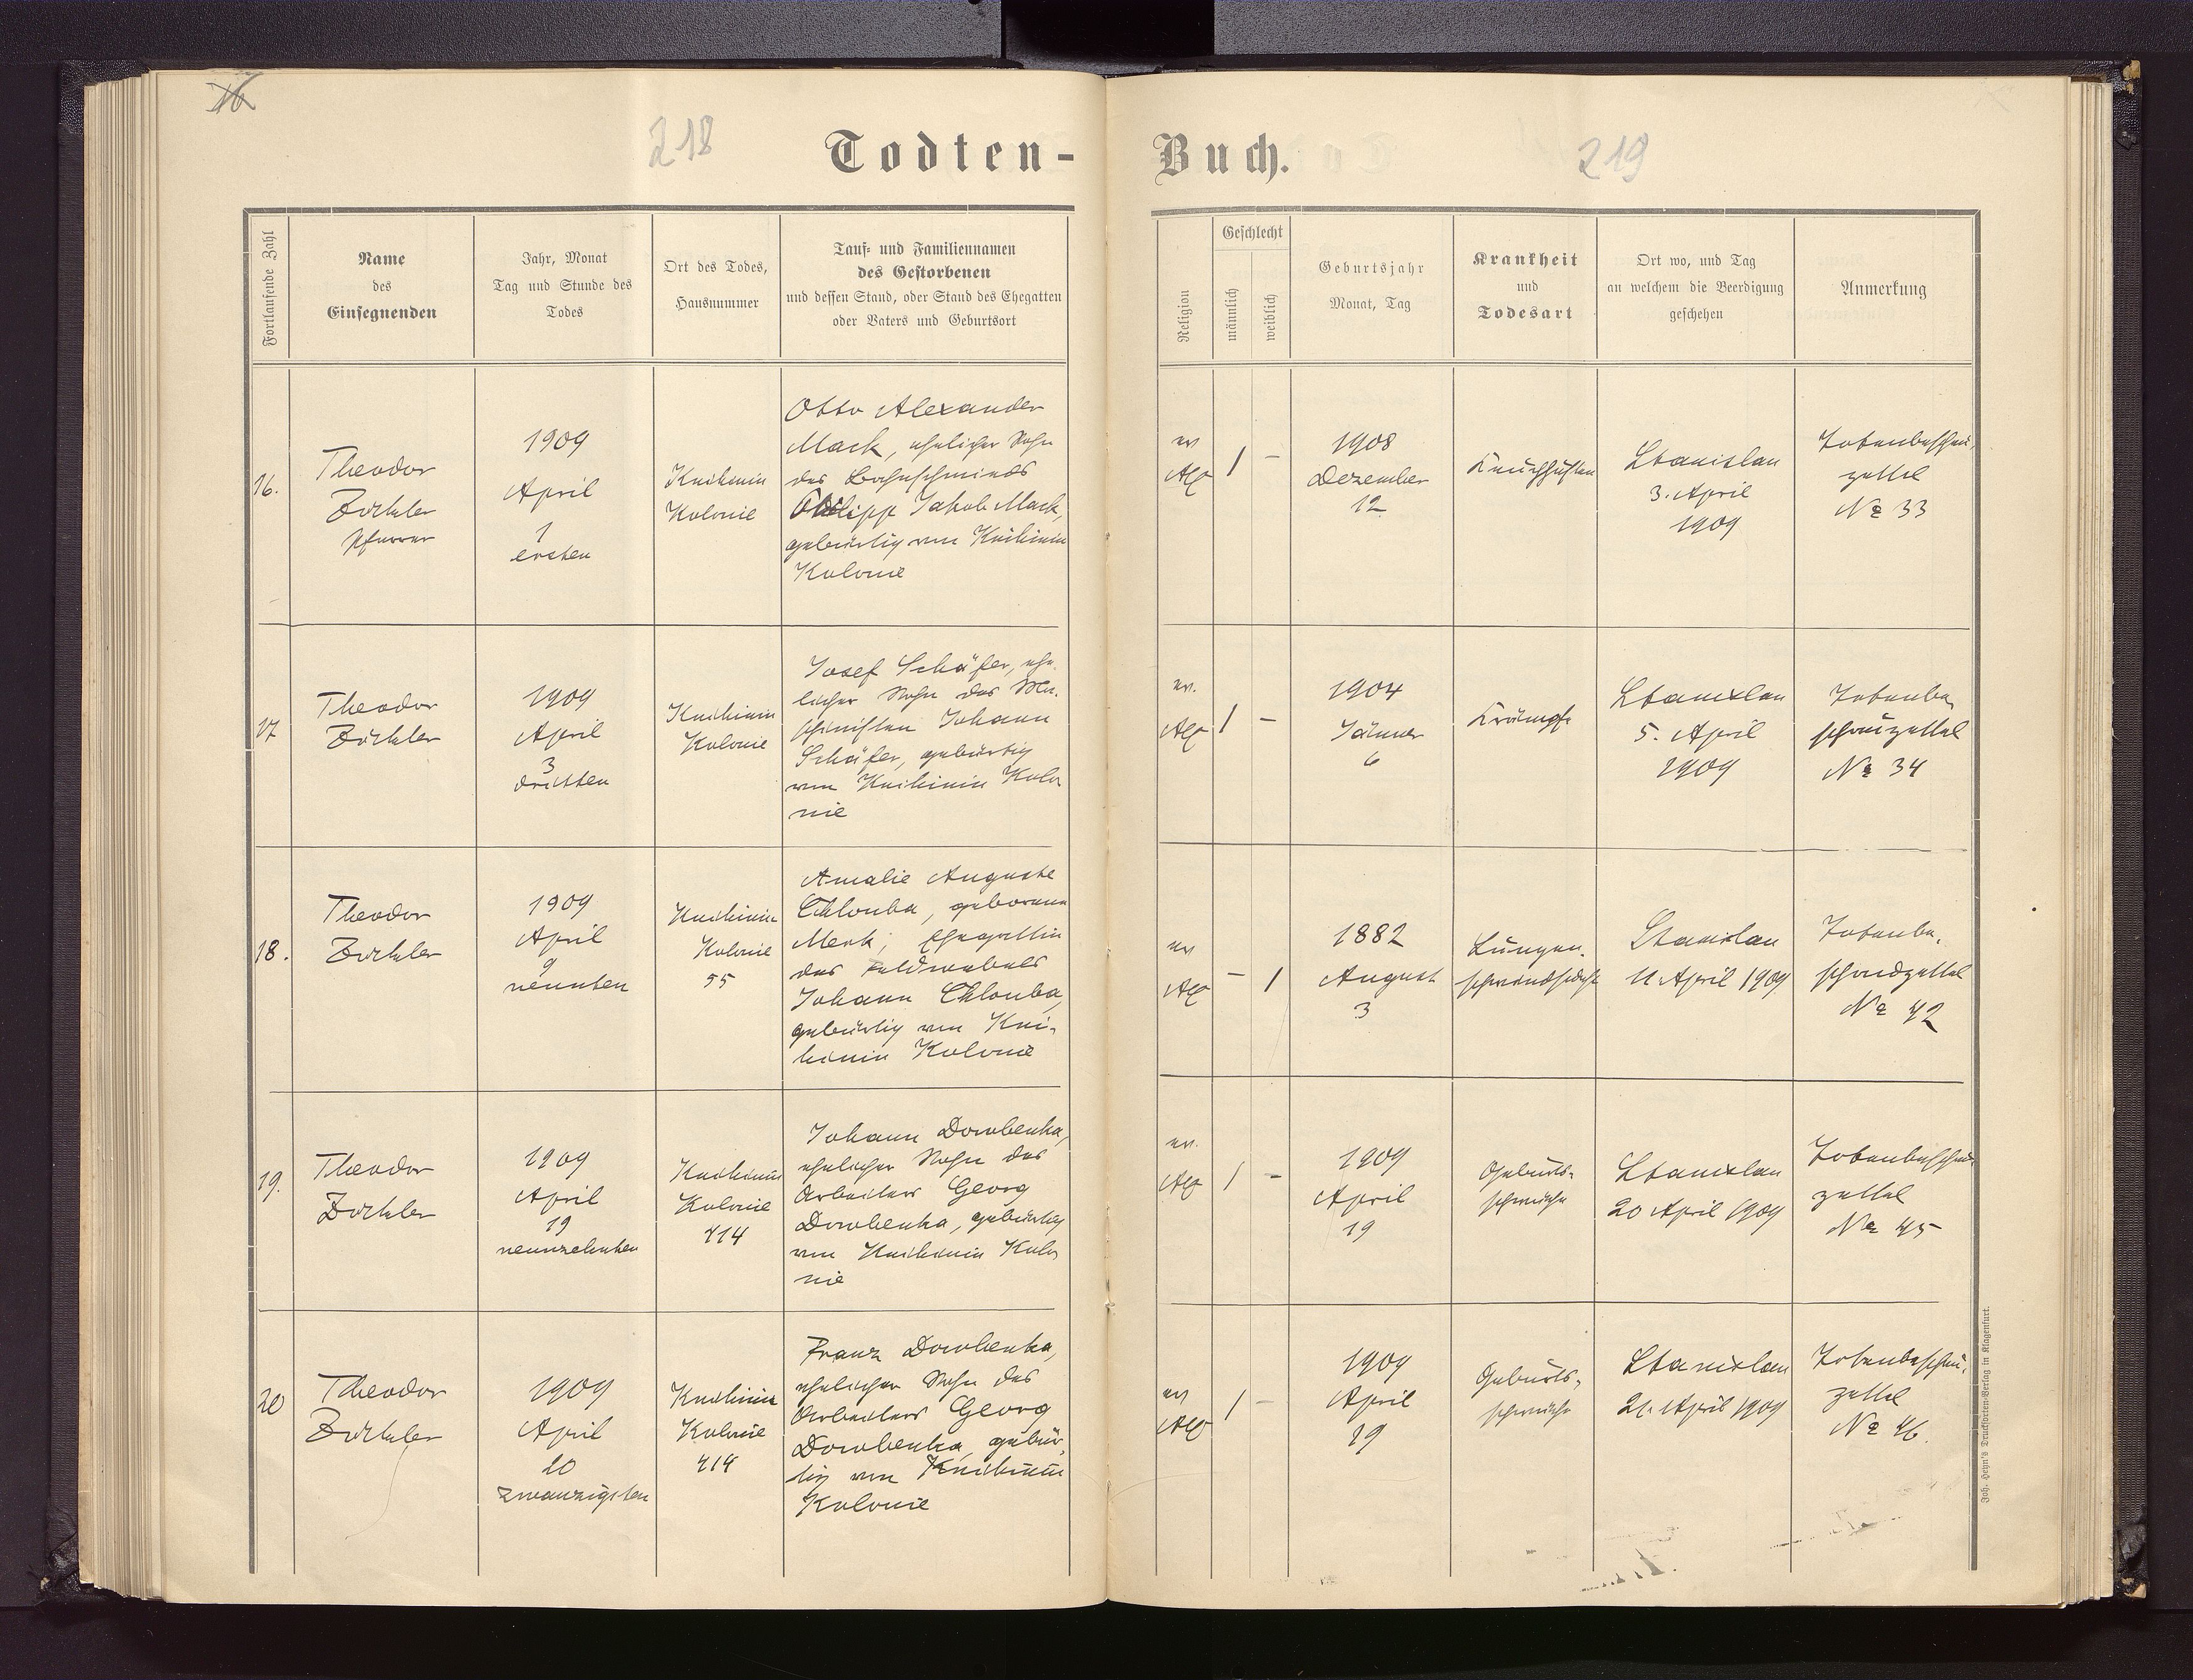 16
218
Todten-
Buch.
219
Fortlaufende Zahl
Name
des
Einsegnenden
Jahr, Monat
Tag und Stunde des
Todes
Ort des Todes,
Hausnummer
Tauf- und Familiennamen
des Gestorbenen
und dessen Stand, oder Stand des Ehegatten
oder Vaters und Geburtsort
Religion
Geschlecht
männlich
weiblich
Geburtsjahr
Monat, Tag
Krankheit
und
Todesart
Ort wo, und Tag
an welchem die Beerdigung
geschehen
Anmerkung
16.
Theodor
Zöckler
Pfarrer
1909
April
1
ersten
Knihinin
Kolonie
Otto Alexander
Mack, ehelicher Sohn
des Bahnschmieds
Philipp Jakob Mack,
gebürtig von Knihinin
Kolonie
ev
AC
1
-
1908
Dezember
12
Keuchhusten
Stanislau
3. April
1909
Totenbeschau,
zettel
No 33
17
Theodor
Zöckler
1909
April
3
dritten
Knihinin
Kolonie
Josef Schäfer, ehe-
licher Sohn des Ma-
schinisten Johann
Schäfer, gebürtig
von Knihinin Kolo
nie
ev.
AC
1
-
1904
Jänner
6
Krämpfe
Stanislau
5. April
1909
Totenbe,
schauzettel
No 34
18.
Theodor
Zöckler
1909
April
9
neunten
Knihinin
Kolonie
55
Amalie Auguste
Chlouba, geborene
Merk, Ehegattin
des Feldwebels
Johann Chlouba,
gebürtig von Kni-
hinin Kolonie
ev
AC
-
1
1882
August
3
Lungen-
schwindsucht
Stanislau
11 April 1909
Totenbe,
schauzettel
No 42
19.
Theodor
Zöckler
1909
April
19
neunzehnten
Knihinin
Kolonie
414
Johann Dowbenka,
ehelicher Sohn des
Arbeiters Georg
Dowbenka, gebürtig
von Knihinin Kolo
nie
ev.
AC
1
-
1909
April
19
Geburts-
schwäche
Stanislau
20 April 1909
Totenbeschau
zettel
No 45
20
Theodor
Zöckler
1909
April
20
zwanzigsten
Knihinin
Kolonie
414
Franz Dowbenka,
ehelicher Sohn des
Arbeiters Georg
Dowbenka, gebür,
tig von Knihinin
Kolonie
ev
AC
1
-
1909
April
19
Geburts-
schwäche
Stanislau
21. April 1909
Totenbeschau,
zettel
No 46.
Joh. Heyn's Drucksorten-Verlag in Klagenfurt.